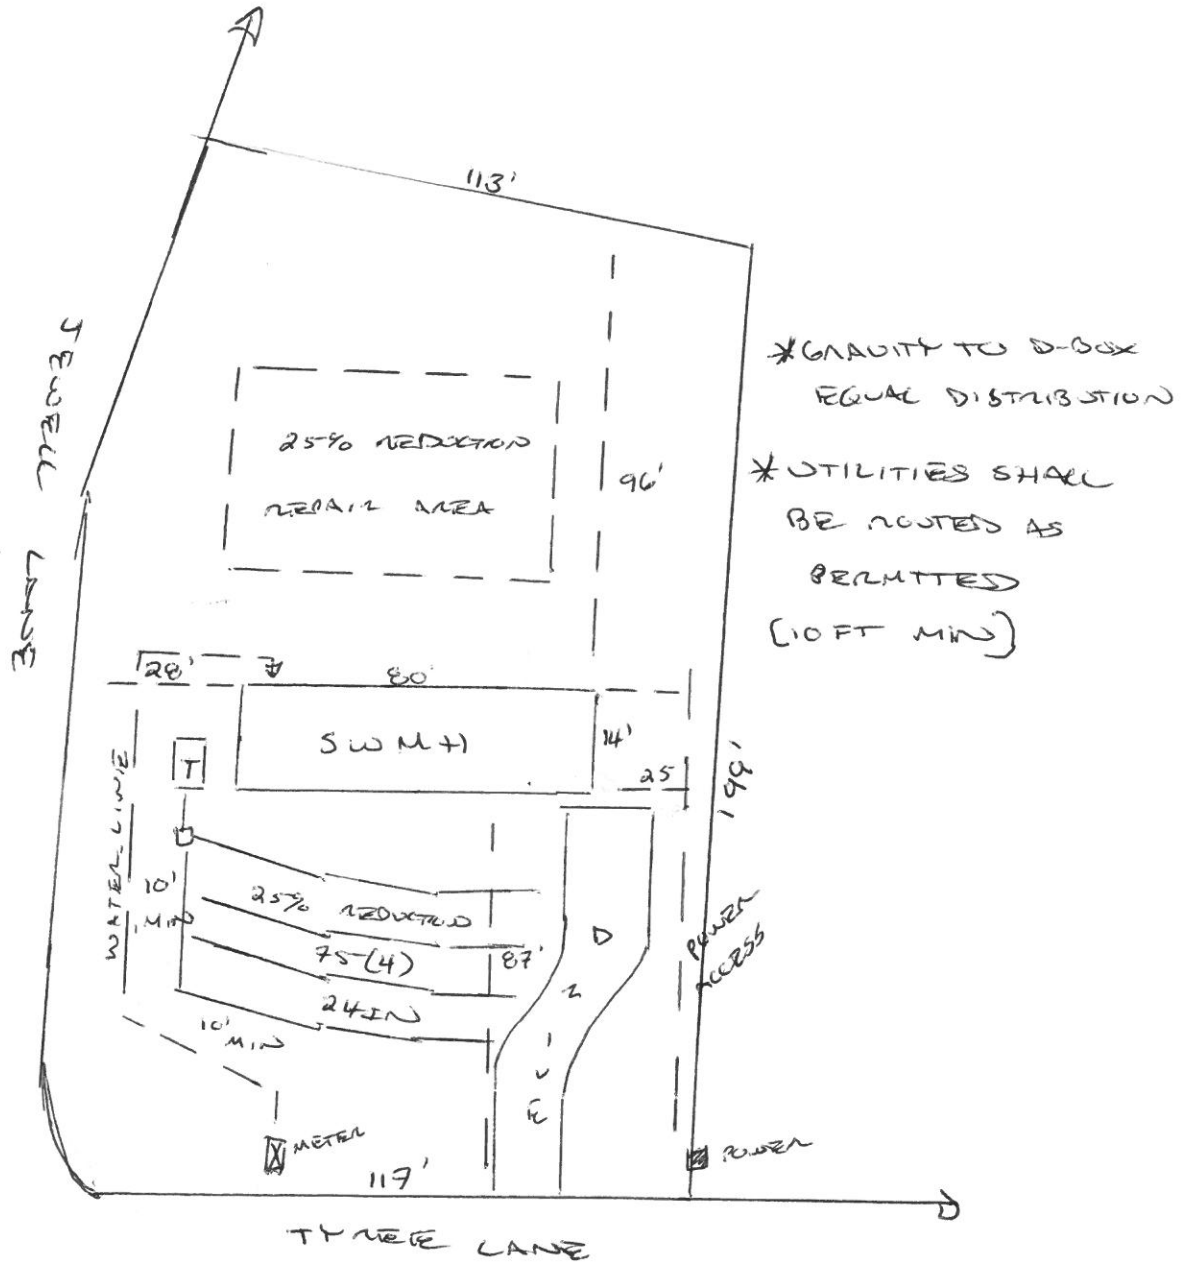 113'
*GRAVITY TO D-BOX
EQUAL DISTRIBUTION
*UTILITIES SHALL
BE ROUTED AS
PERMITTED
(10FT MIN)
25% REDUCTION
REPAIR AREA
96'
28'
80'
SWMH
14'
25
T
199'
WATER LINE
10'
MIN
25% REDUCTION
75-(4)
24IN
87'
10'
MIN
DRIVE
POWER
ACCESS
METER
POWER
117'
TYREE LANE
LANE